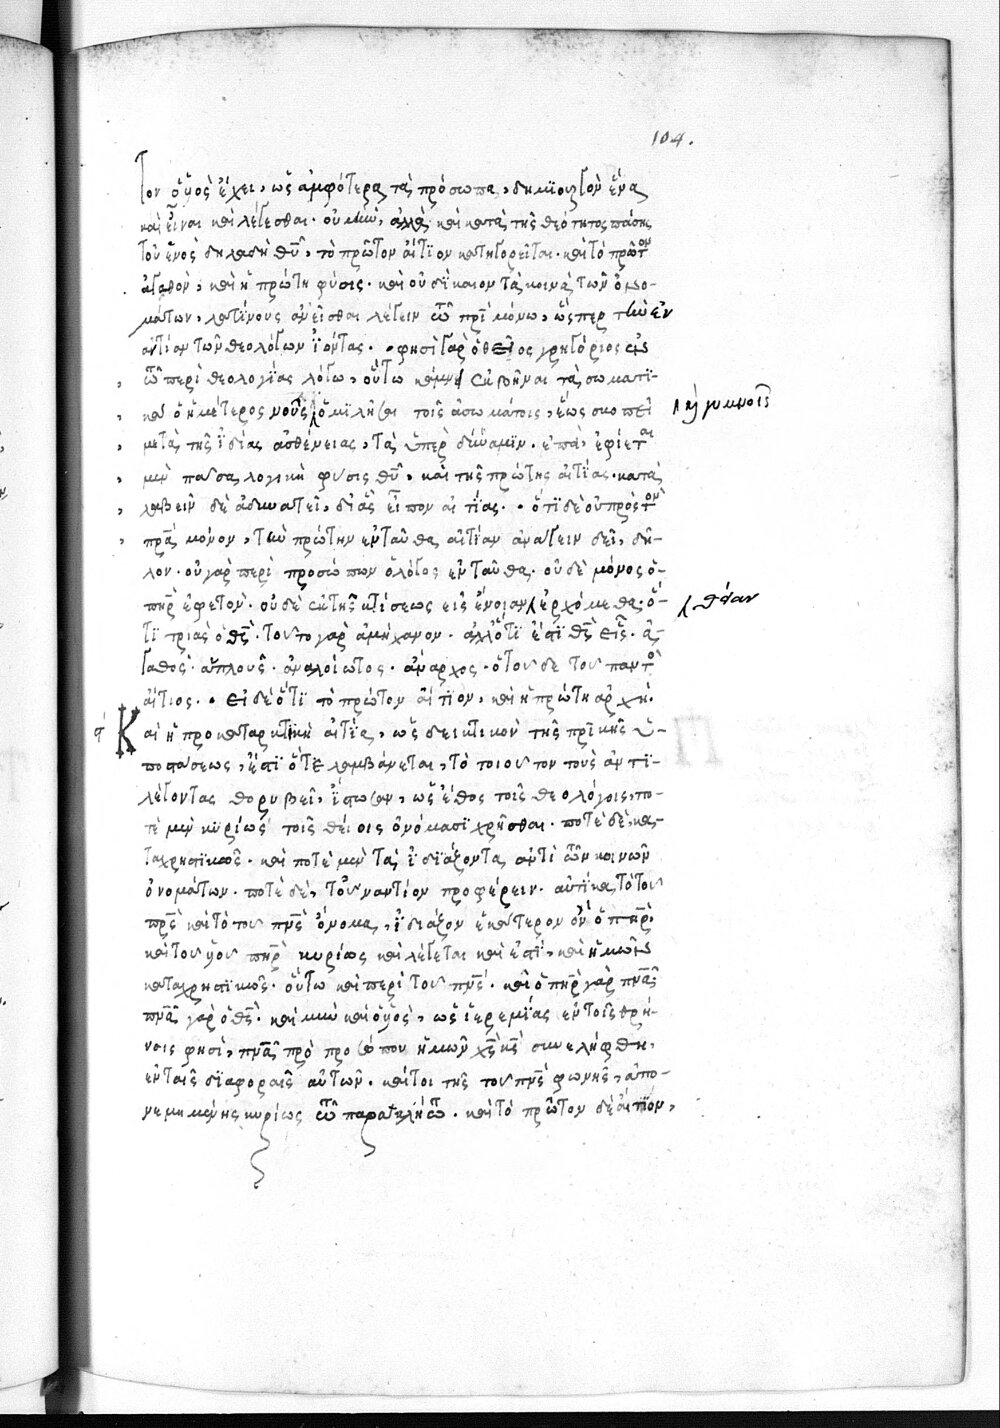 104.
τον ὁ υἱὸς ἔχει, ὡς ἀμφότερα τὰ πρόσωπα, δημιουργὸν ἕνα
καὶ εἶναι καὶ λέγεσθαι. οὐ μὴν, ἀλλὰ καὶ κατὰ τῆς θεότητος πάσης
τοῦ ἑνὸς δηλαδὴ θῦ, τὸ πρῶτον αἴτιον κατηγορεῖται. καὶ τὸ πρῶτον
ἀγαθὸν, καὶ ἡ πρώτη φύσις. καὶ οὐ δίκαιον τὰ κοινὰ τῶν ὀνο-
μάτων, λατίνους ἀνεῖσθαι λέγειν τῶ πρὶ μόνω, ὥσπερ τὴν ἐν
αντίαν τῶν θεολόγων ἰόντας. φησὶ γὰρ ὁ θεῖος γρηγόριος ἐν
τῶ περὶ θεολογίας λόγω, οὕτω κάμνει ἐκβῆναι τὰ σωματι-
κὰ ὁ ἡμέτερος νοῦς ὁμιλῆσαι τοῖς ἀσωμάτοις, ἕως σκοπεῖ
καὶ γυμνοῖς
μετὰ τῆς ἰδίας ἀσθενείας, τὰ ὑπὲρ δύναμιν. ἐπεὶ, ἐφίεται
μὲν πᾶσα λογικὴ φύσις θῦ, καὶ τῆς πρώτης αἰτίας. κατα
λαβεῖν δὲ ἀδυνατεῖ, δι' ἃς εἶπον αἰτίας. ὅτι δὲ οὐ πρὸς τὸν
πρα μόνον, τὴν πρώτην ἐνταῦθα αἰτίαν ἀνάγειν δεῖ, δῆ-
λον. οὐ γὰρ περὶ προσώπων ὁ λόγος ἐνταῦθα. οὐδὲ μόνος ὁ
πηρ ἐφετόν. οὐδὲ ἐκ τῆς κτίσεως εἰς ἔννοιαν ἐρχόμεθα, ὅ-
θέαν
τι τριὰς ὁ θς. τοῦτο γὰρ ἀμήχανον. ἀλλ' ὅτι ἐστὶ θς εἷς. ἀ-
γαθὸς. ἁπλοῦς. ἀναλλοίωτος. ἄναρχος. ὁ τοῦδε τοῦ παντὸς
αἴτιος. εἰ δὲ ὅτι τὸ πρῶτον αἴτιον, καὶ ἡ πρώτη ἀρχὴ.
Καὶ ἡ προκαταρκτικὴ αἰτία, ὡς δεικτικὸν τῆς πρικῆς ὑ-
ποστάσεως, ἔστι ὅτε λαμβάνεται, τὸ τοιοῦτον τοὺς ἀντι-
λέγοντας θορυβεῖ, ἴστωσαν, ὡς ἔθος τοῖς θεολόγοις, πο-
τὲ μὲν κυρίως τοῖς θείοις ὀνόμασι χρῆσθαι. ποτὲ δὲ, κα-
ταχρηστικῶς. καὶ ποτὲ μὲν τὰ ἰδιάζοντα ἀντὶ τῶν κοινῶν
ὀνομάτων. ποτὲ δὲ, τοὐναντίον προφέρειν. αὐτίκα τὸ τοῦ
πρς καὶ τὸ τοῦ πνς ὄνομα, ἰδιάζον ἑκάτερον ὂν ὁ πηρ,
καὶ τοῦ υἱοῦ πηρ κυρίως καὶ λέγεται καὶ ἐστὶ, καὶ ἡμῶν
καταχρηστικῶς. οὕτω καὶ περὶ τοῦ πνς. καὶ ὁ πηρ γὰρ πνα
πνα γὰρ ὁ θς. καὶ μὴν καὶ ὁ υἱὸς, ὡς ἱερεμίας ἐν τοῖς θρή-
νοις φησὶ, πνα πρὸ προσώπου ἡμῶν χς κς συνελήφθη,
ἐν ταῖς διαφοραῖς αὐτῶν. καίτοι τῆς τοῦ πνς φωνῆς, ἀπο-
νεμημένης κυρίως τῶ παρακλήτω. καὶ τὸ πρῶτον δὲ αἴτιον,